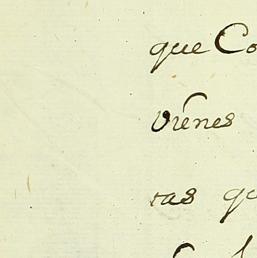 que Co
viénes
ras qu